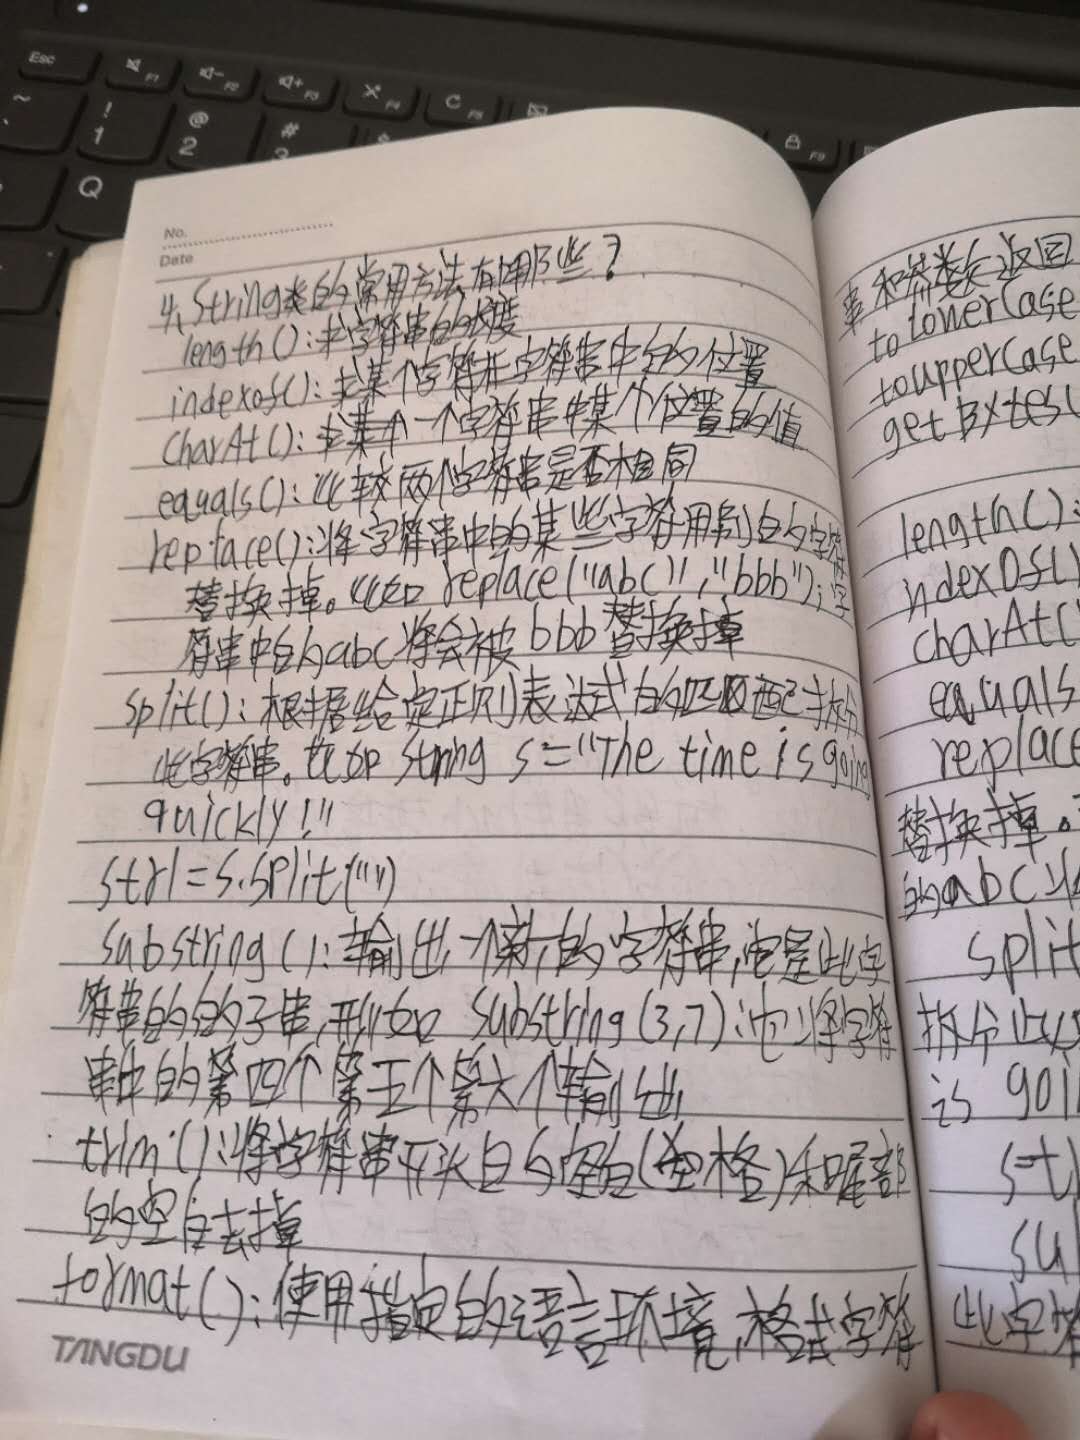 Esc
F1
F2
F3
F4
F5
F9
~
!
1
@
2
#
3
Q
No.
Date
4、String类的常用方法有哪些？
length()：求字符串的长度
indexOf()：求某个字符在字符串中的位置
CharAt()：求某个一个字符串中某个位置的值
equals()：比较两个字符串是否相同
replace()：将字符串中的某些字符用别的字符
替换掉。比如 replace("abc","bbb");字
符串中的abc将会被bbb替换掉
split()：根据给定正则表达式的匹配拆分
此字符串。比如 String s="The time is going
quickly!"
str1=s.split("")
substring()：输出一个新的字符串,它是此字
符串的的子串,形如 substring(3,7):它将字符
串中的第四个第五个第六个输出
trim()：将字符串开头的空白(空格)和尾部
的空白去掉
format()：使用指定的语言环境,格式字符
TANGDU
串和参数返回
toLowerCase
toupperCase
getBytes(
length():
indexOf()
charAt(
equals
replace
替换掉。
的abc将
split
拆分此
is goi
st
su
此字符